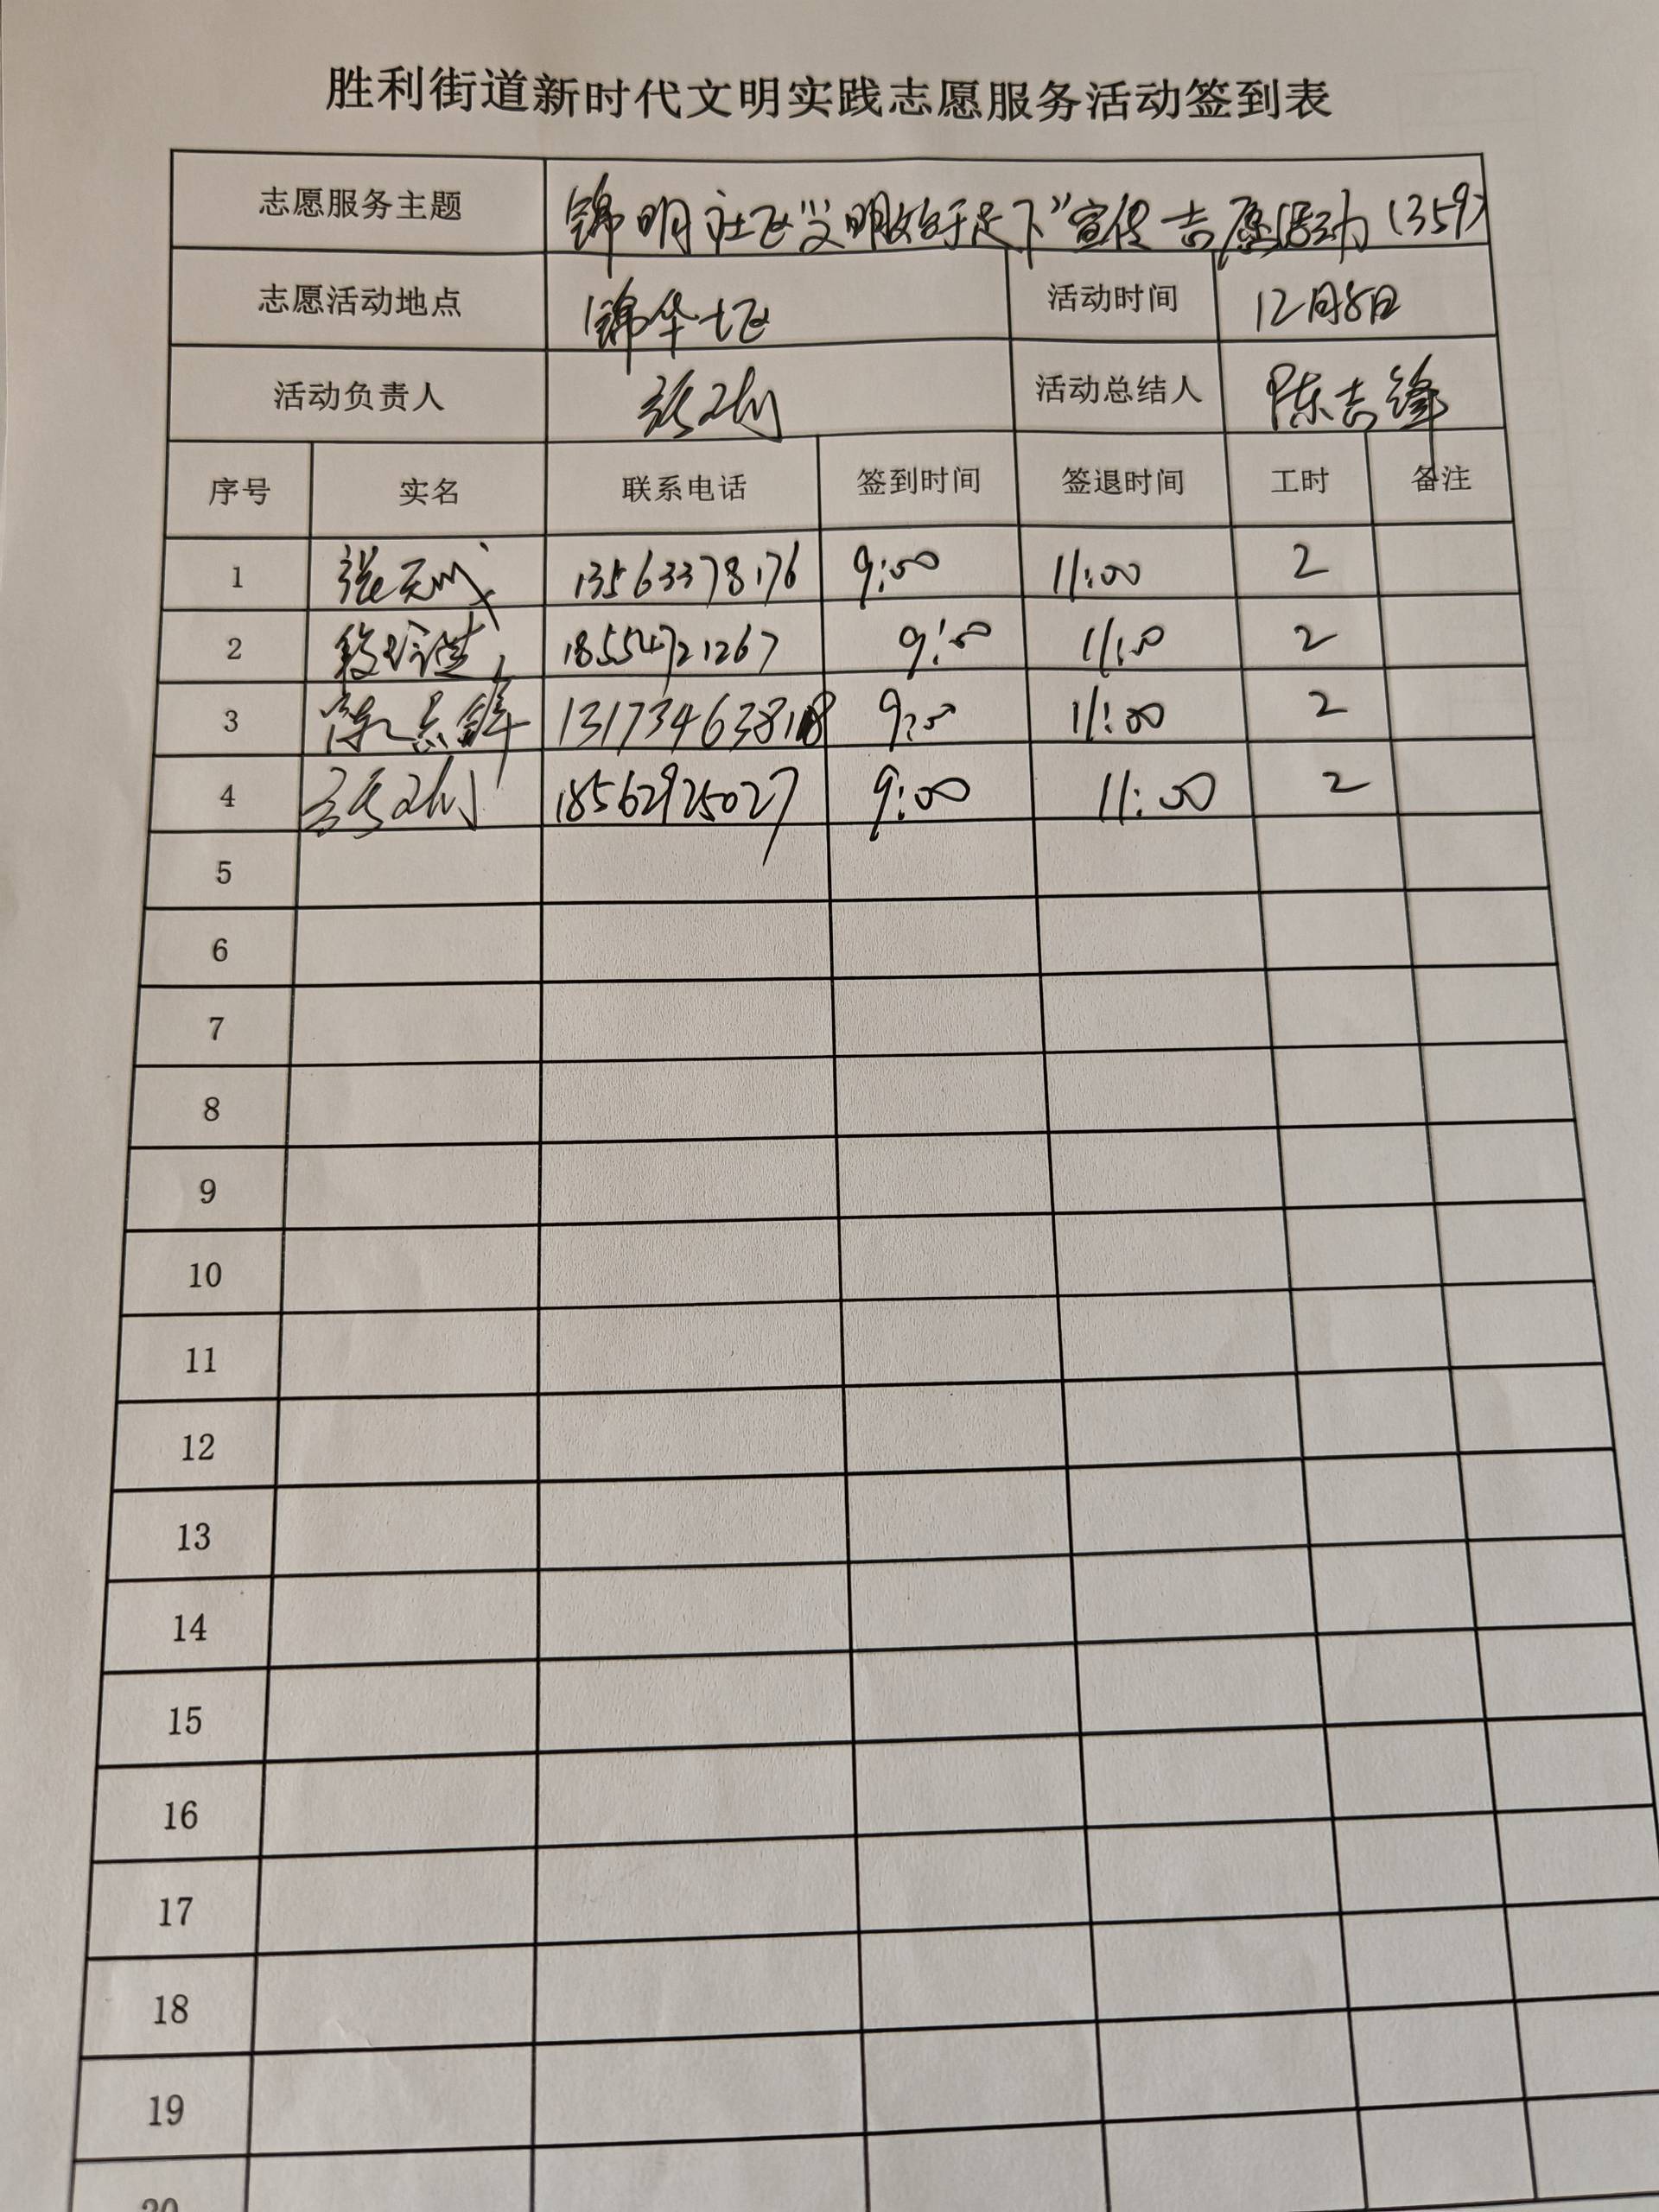 胜利街道新时代文明实践志愿服务活动签到表
志愿服务主题 锦明社区“文明始于足下”宣传志愿活动(359)
志愿活动地点 锦华七区 活动时间 12月8日
活动负责人 活动总结人 陈志锋
序号 实名 联系电话 签到时间 签退时间 工时 备注
1 张天成 13563378176 9:00 11:00 2
2 18554721267 9:00 11:00 2
3 陈志锋 9:00 11:00 2
4 18562925027 9:00 11:00 2
5
6
7
8
9
10
11
12
13
14
15
16
17
18
19
20